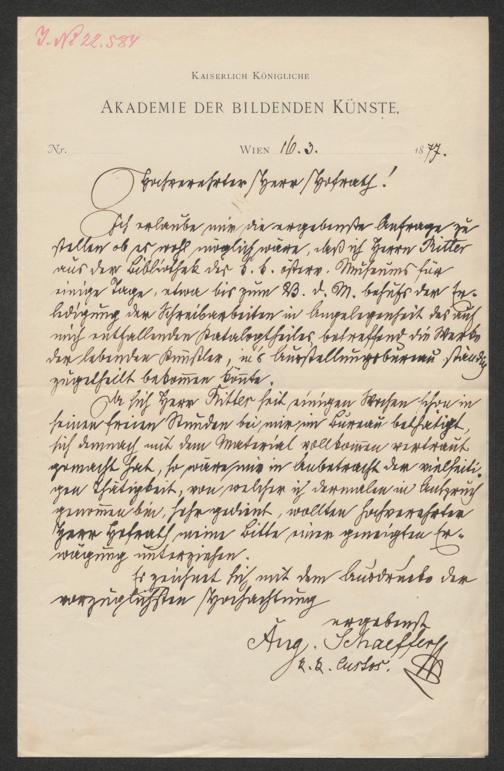 J. № 22.584
KAISERLICH KÖNIGLICHE
AKADEMIE DER BILDENDEN KÜNSTE.
Nr. WIEN 16. 3. 1877.
Hochverehrter Herr Hofrath!
Ich erlaube mir die ergebenste Anfrage zu
stellen ob es wohl möglich wäre, daß ich Herrn Ritter
aus der Bibliothek des k. k. österr. Museums für
einige Tage, etwa bis zum 23. d. M. behufs der Er-
ledigung der Schreibarbeiten in Angelegenheit des auf
mich entfallenden Katalogtheiles betreffend die Werke
der lebenden Künstler, in's Ausstellungsbureau, ständig
zugetheilt bekommen könnte.
Da sich Herr Ritter seit einigen Wochen schon in
seinen freien Stunden bei mir im Bureau bethätigt,
sich demnach mit dem Material vollkommen vertraut
gemacht hat, so wäre mir in Anbetracht der vielseiti-
gen Thätigkeit, von welcher ich dermalen in Anspruch
genommen bin, sehr gedient, wollten hochverehrter
Herr Hofrath meine Bitte einer geneigten Er-
wägung unterziehen.
Es zeichnet sich mit dem Ausdrucke der
vorzüglichsten Hochachtung
ergebenst
Aug. Schaeffer
k. k. Custos.